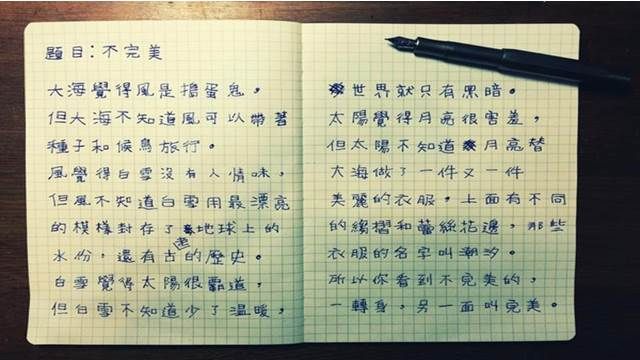 題目：不完美
大海覺得風是搗蛋鬼，
但大海不知道風可以帶著
種子和候鳥旅行。
風覺得白雪沒有人情味，
但風不知道白雪用最漂亮
的模樣封存了地球上的
水份，還有古老的歷史。
白雪覺得太陽很霸道，
但白雪不知道少了溫暖，
世界就只有黑暗。
太陽覺得月亮很害羞，
但太陽不知道月亮替
大海做了一件又一件
美麗的衣服，上面有不同
的縐摺和蕾絲花邊，那些
衣服的名字叫潮汐。
所以你看到不完美的，
一轉身，另一面叫完美。